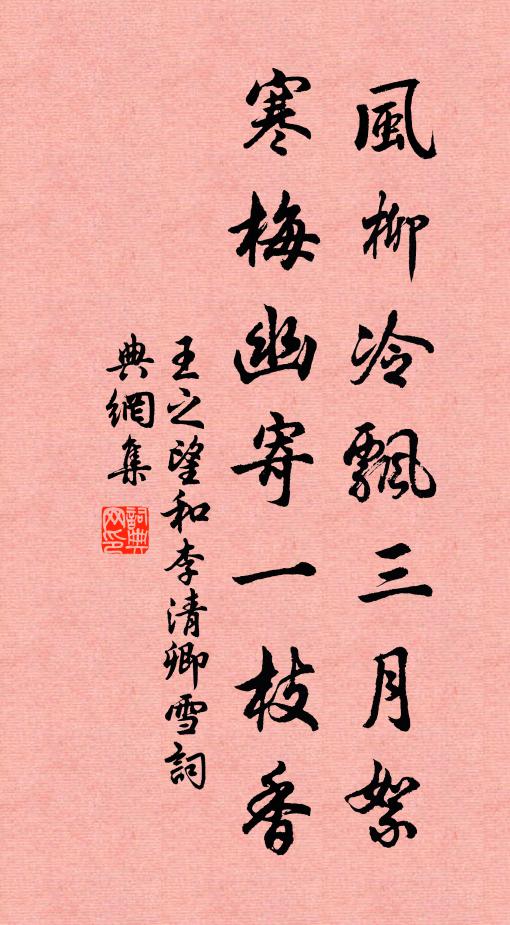 風柳冷飄三月絮
寒梅幽寄一枝香
王之望和李清卿雪詞
典網集
詞典網印